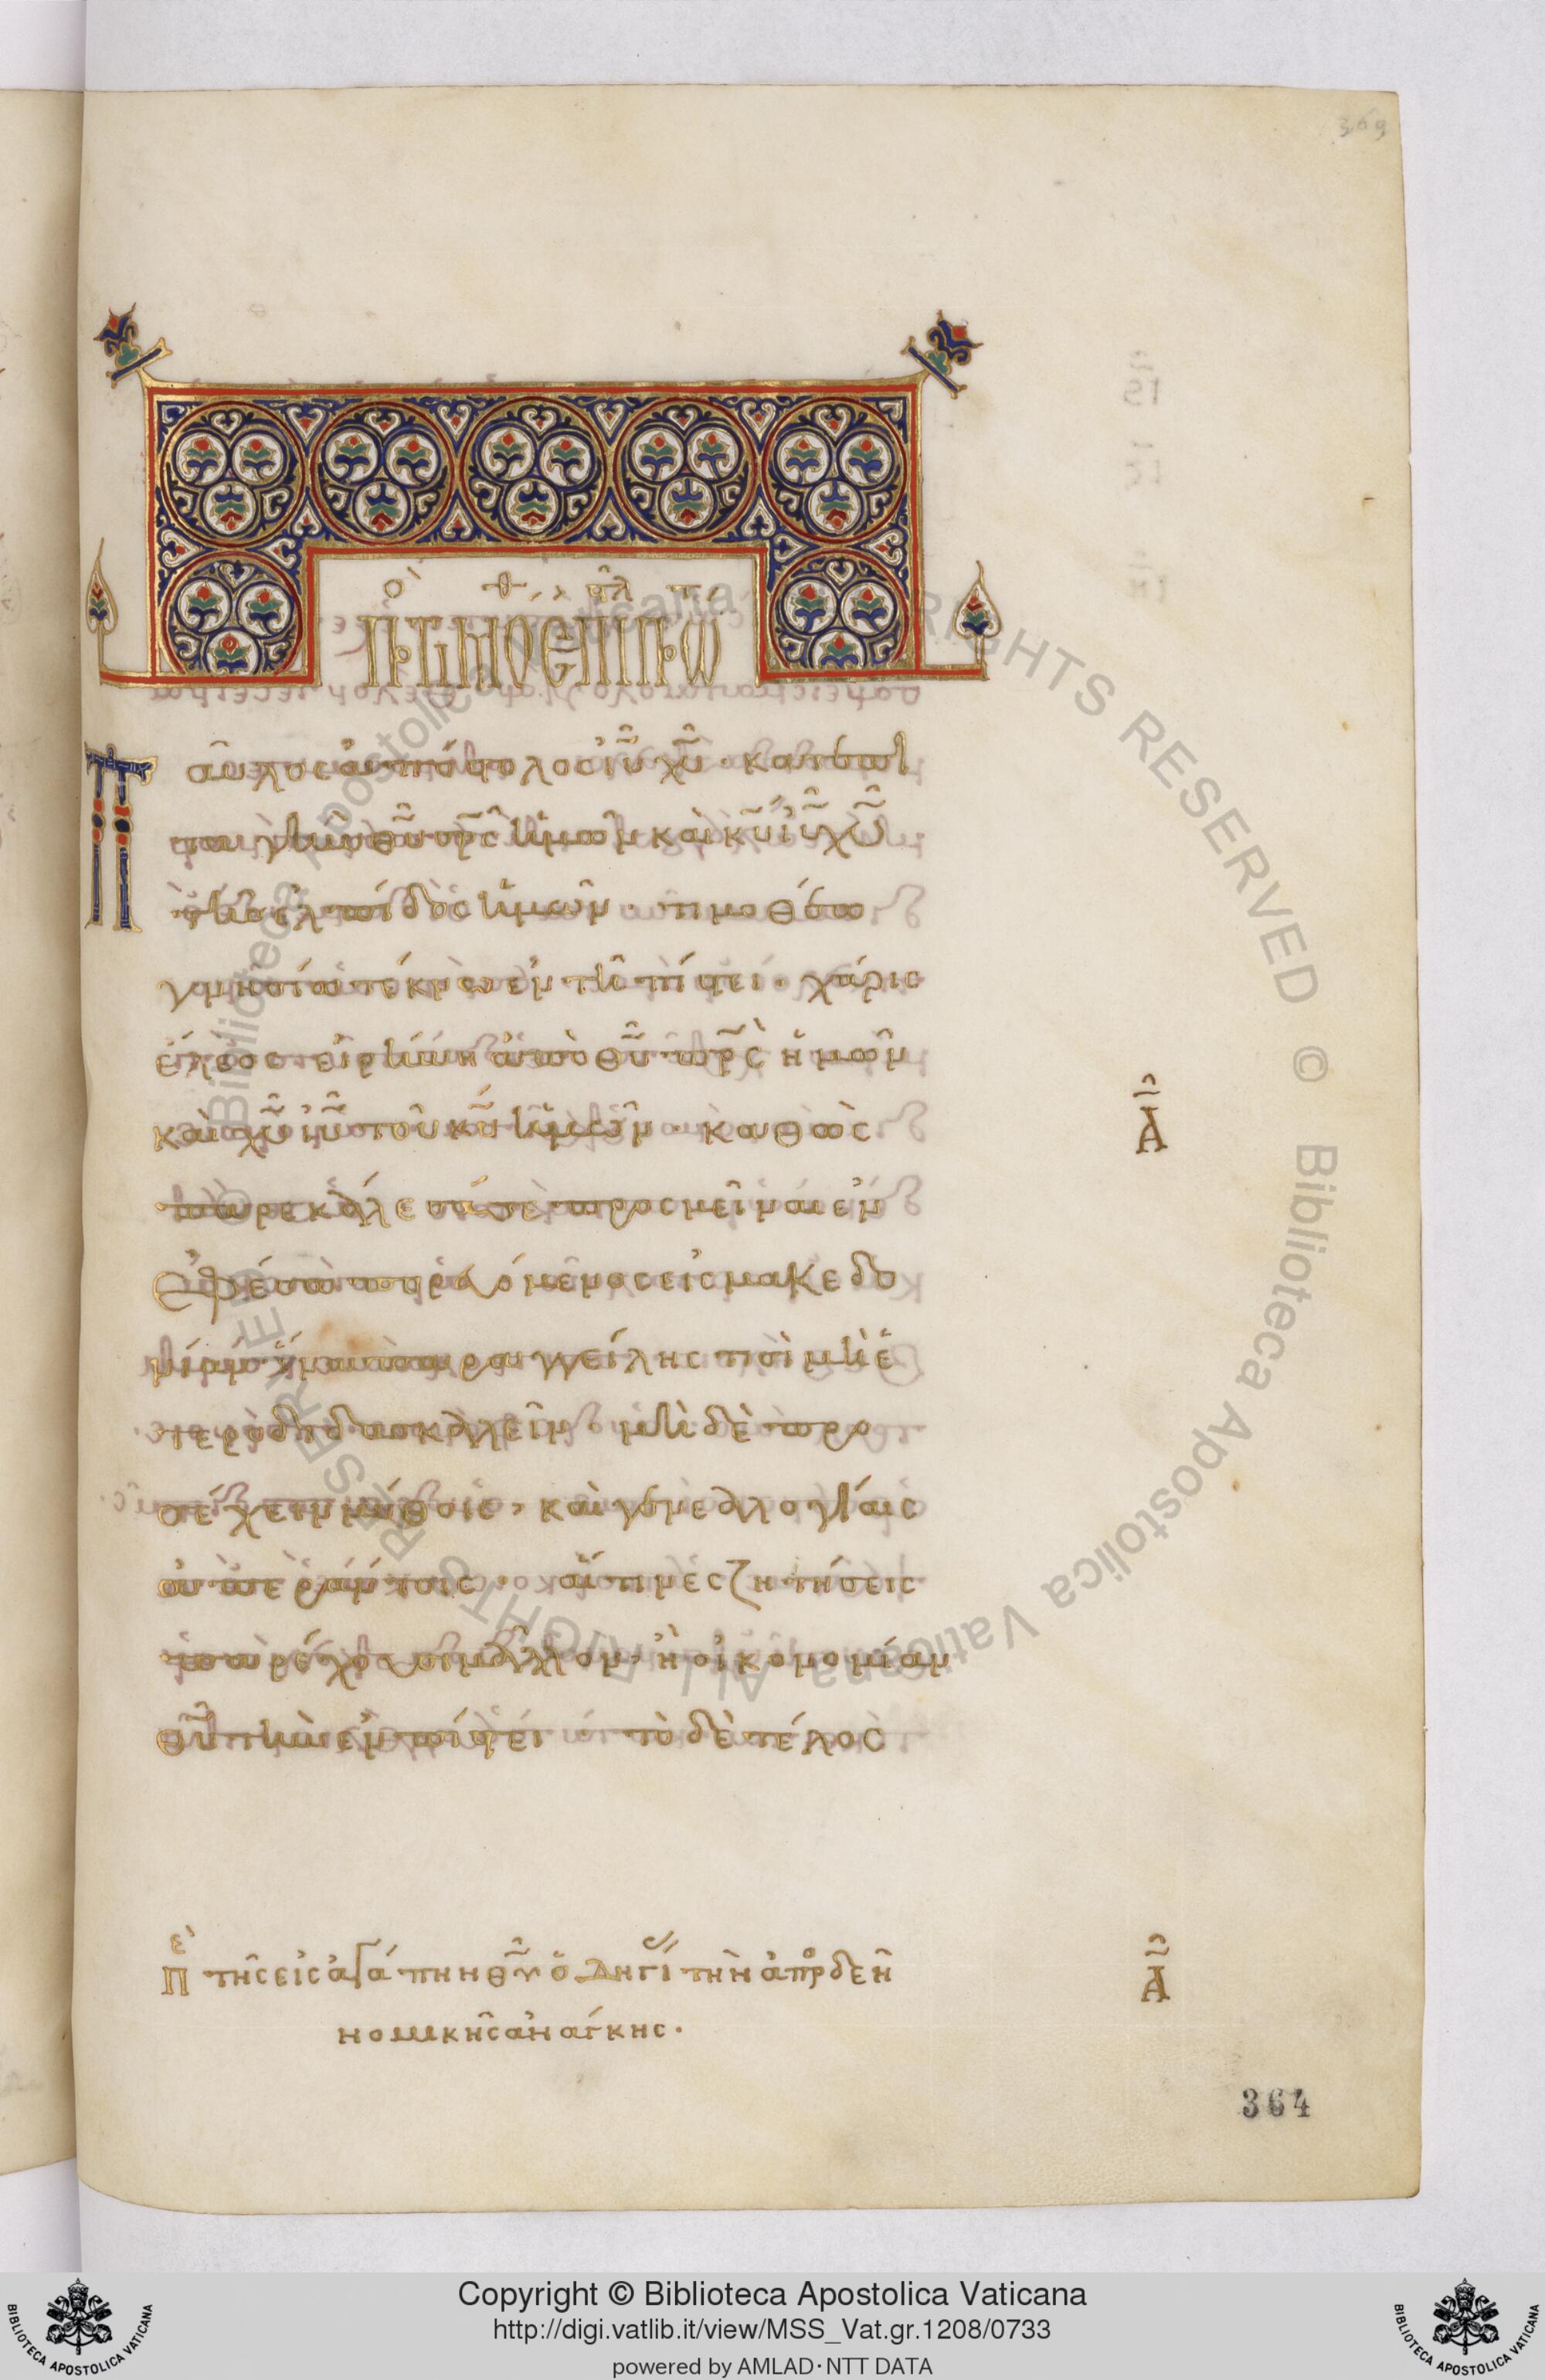 369
Πρ Τιμοθ ἐπιστολ πρώτ
Παῦλος ἀπόστολος ἰῦ χῦ· κατ ἐπι
ταγὴν θῦ σρ̅ς ἡμῶν καὶ κῦ ἰῦ χῦ
τῆς ἐλπίδος ἡμῶν· τιμοθέω
γνησίω τέκνω ἐν τῆ πίστει· χάρις
ἔλεος εἰρήνη ἀπὸ θῦ πρ̅ς ἡμῶν
καὶ χῦ ἰῦ τοῦ κῦ ἡμῶν· καθὼς
παρεκάλεσά σε προσμεῖναι ἐν
ἐφέσω πορευόμενος εἰς μακεδο
νίαν ἵνα παραγγείλης τισὶ μὴ ἑ
τεροδιδασκαλεῖν· μηδὲ προ
σέχειν μύθοις, καὶ γενεαλογίαις
ἀπεράντοις· αἵτινες ζητήσεις
παρέχουσι μᾶλλον, ἢ οἰκονομίαν
θῦ τὴν ἐν πίστει· τὸ δὲ τέλος
Α
Περὶ τῆς εἰς ἀγάπην θῦ ὁδηγί τὴν ἀπρδεῆ
νομικῆς ἀνάγκης.
Α
364
© Biblioteca Apostolica Vaticana ALL RIGHTS RESERVED
Copyright © Biblioteca Apostolica Vaticana
http://digi.vatlib.it/view/MSS_Vat.gr.1208/0733
powered by AMLAD·NTT DATA
BIBLIOTECA APOSTOLICA VATICANA
BIBLIOTECA APOSTOLICA VATICANA